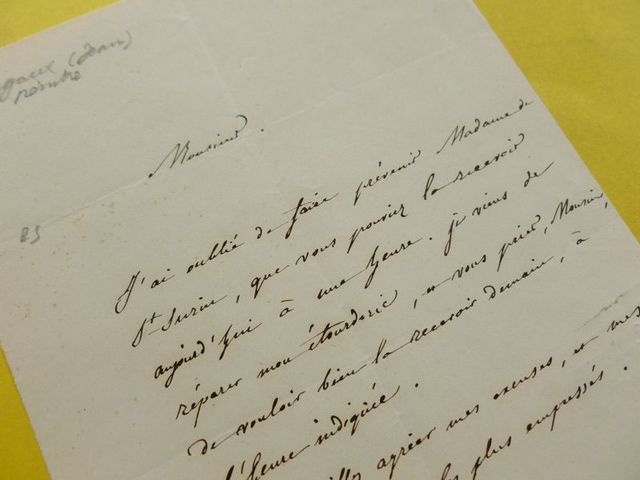 (Jean)
peintre
Monsieur.
85
J'ai oublié de faire prévenir Madame de
St Surin, que vous pouviez la recevoir
aujourd'hui à une heure. je viens de
réparer mon étourderie, et vous prier, Monsieur,
de vouloir bien la recevoir demain, à
l'heure indiquée.
agréer mes excuses, et mes
plus empressés.